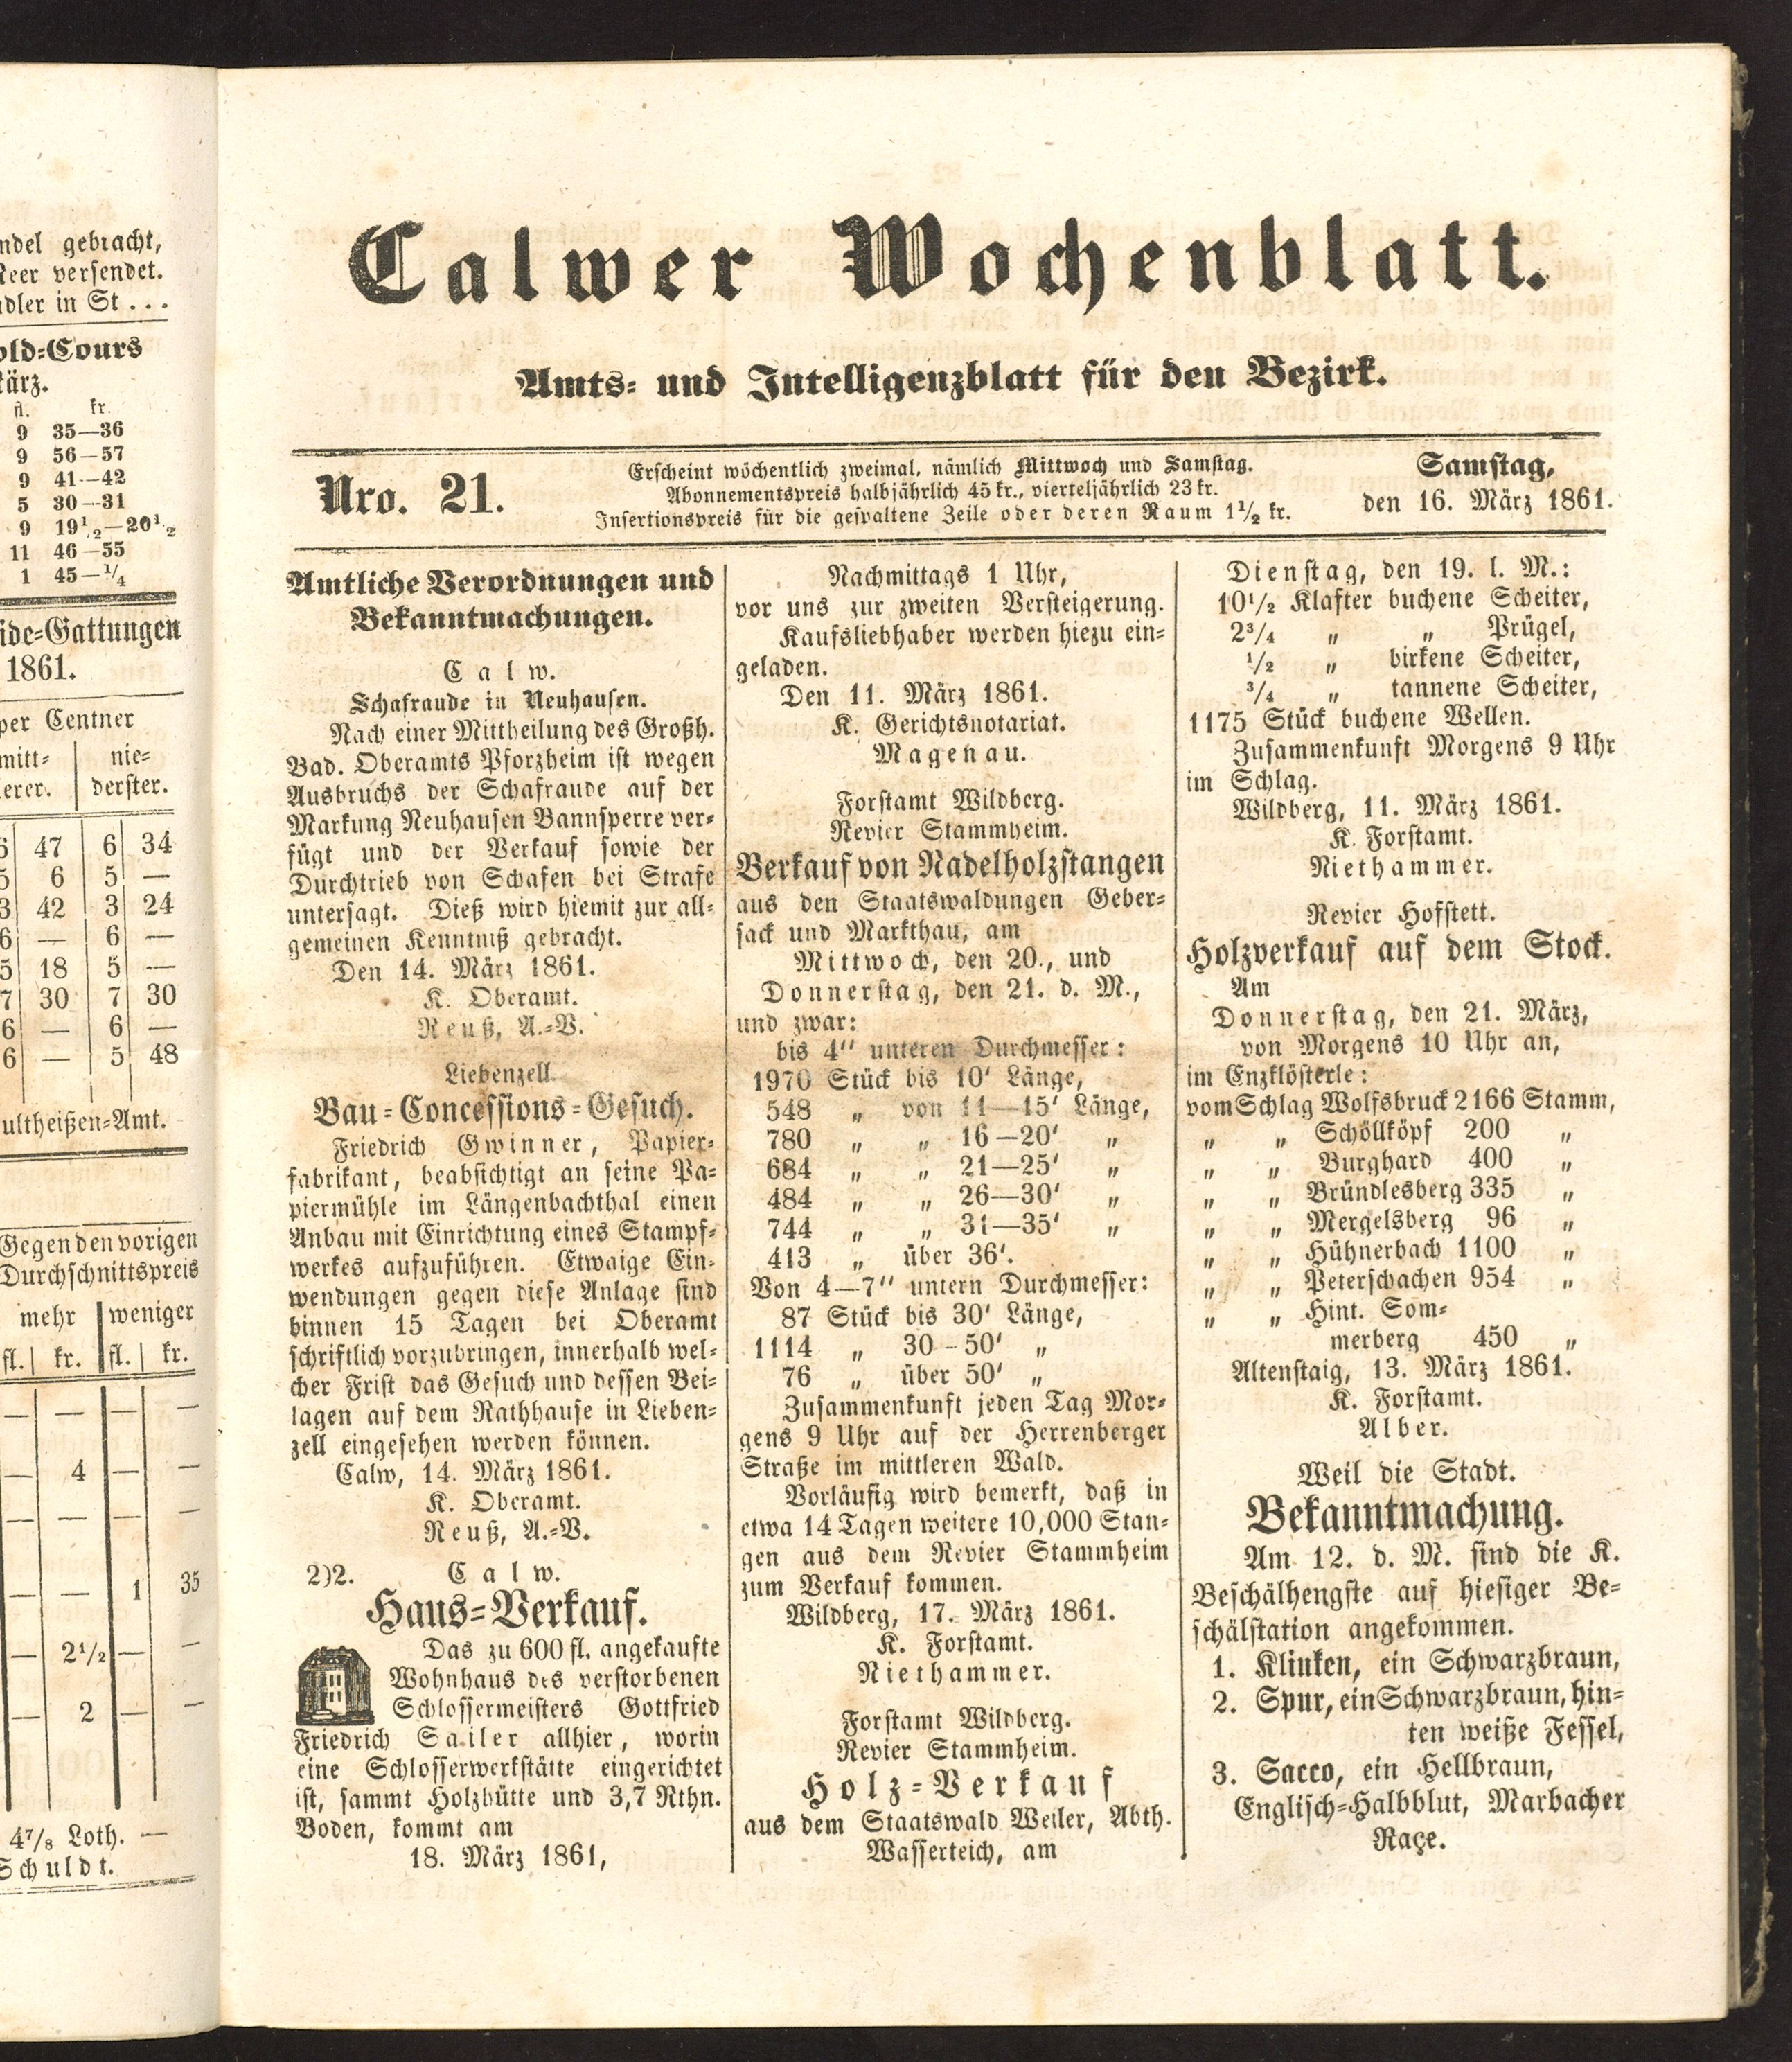 ndel gebracht,
Meer versendet.
ndler in St . . .
old-Cours
März.
fl. kr.
9 35—36
9 56—57
9 41—42
5 30—31
9 19½—20½
11 46—55
1 45—¼
ide-Gattungen
1861.
per Centner
mitt- nie-
erer. derster.
6 47 6 34
5 6 5 —
3 42 3 24
6 — 6 —
5 18 5 —
7 30 7 30
6 — 6 —
6 — 5 48
ultheißen-Amt.
Gegen den vorigen
Durchschnittspreis
mehr weniger
fl. kr. fl. kr.
— — — —
— 4 — —
— — — —
— — 1 35
— 2½ — —
— 2 — —
4⅞ Loth. —
Schuldt.
Calwer Wochenblatt.
Amts- und Intelligenzblatt für den Bezirk.
Nro. 21.
Erscheint wöchentlich zweimal, nämlich Mittwoch und Samstag.
Abonnementspreis halbjährlich 45 kr., vierteljährlich 23 kr.
Insertionspreis für die gespaltene Zeile oder deren Raum 1½ kr.
Samstag,
den 16. März 1861.
Amtliche Verordnungen und
Bekanntmachungen.
Calw.
Schafraude in Neuhausen.
Nach einer Mittheilung des Großh.
Bad. Oberamts Pforzheim ist wegen
Ausbruchs der Schafraude auf der
Markung Neuhausen Bannsperre ver-
fügt und der Verkauf sowie der
Durchtrieb von Schafen bei Strafe
untersagt. Dieß wird hiemit zur all-
gemeinen Kenntniß gebracht.
Den 14. März 1861.
K. Oberamt.
Reuß, A.-V.
Liebenzell.
Bau-Concessions-Gesuch.
Friedrich Gwinner, Papier-
fabrikant, beabsichtigt an seine Pa-
piermühle im Längenbachthal einen
Anbau mit Einrichtung eines Stampf-
werkes aufzuführen. Etwaige Ein-
wendungen gegen diese Anlage sind
binnen 15 Tagen bei Oberamt
schriftlich vorzubringen, innerhalb wel-
cher Frist das Gesuch und dessen Bei-
lagen auf dem Rathhause in Lieben-
zell eingesehen werden können.
Calw, 14. März 1861.
K. Oberamt.
Reuß, A.-V.
2)2. Calw.
Haus-Verkauf.
Das zu 600 fl. angekaufte
Wohnhaus des verstorbenen
Schlossermeisters Gottfried
Friedrich Sailer allhier, worin
eine Schlosserwerkstätte eingerichtet
ist, sammt Holzhütte und 3,7 Rthn.
Boden, kommt am
18. März 1861,
Nachmittags 1 Uhr,
vor uns zur zweiten Versteigerung.
Kaufsliebhaber werden hiezu ein-
geladen.
Den 11. März 1861.
K. Gerichtsnotariat.
Magenau.
Forstamt Wildberg.
Revier Stammheim.
Verkauf von Nadelholzstangen
aus den Staatswaldungen Geber-
sack und Markthau, am
Mittwoch, den 20., und
Donnerstag, den 21. d. M.,
und zwar:
bis 4" unteren Durchmesser:
1970 Stück bis 10' Länge,
548 „ von 11—15' Länge,
780 „ „ 16—20' „
684 „ „ 21—25' „
484 „ „ 26—30' „
744 „ „ 31—35' „
413 „ über 36'.
Von 4—7" untern Durchmesser:
87 Stück bis 30' Länge,
1114 „ 30-50' „
76 „ über 50' „
Zusammenkunft jeden Tag Mor-
gens 9 Uhr auf der Herrenberger
Straße im mittleren Wald.
Vorläufig wird bemerkt, daß in
etwa 14 Tagen weitere 10,000 Stan-
gen aus dem Revier Stammheim
zum Verkauf kommen.
Wildberg, 17. März 1861.
K. Forstamt.
Niethammer.
Forstamt Wildberg.
Revier Stammheim.
Holz-Verkauf
aus dem Staatswald Weiler, Abth.
Wasserteich, am
Dienstag, den 19. l. M.:
10½ Klafter buchene Scheiter,
2¾ „ „ Prügel,
½ „ birkene Scheiter,
¾ „ tannene Scheiter,
1175 Stück buchene Wellen.
Zusammenkunft Morgens 9 Uhr
im Schlag.
Wildberg, 11. März 1861.
K. Forstamt.
Niethammer.
Revier Hofstett.
Holzverkauf auf dem Stock.
Am
Donnerstag, den 21. März,
von Morgens 10 Uhr an,
im Enzklösterle:
vom Schlag Wolfsbruck 2166 Stamm,
„ „ Schöllköpf 200 „
„ „ Burghard 400 „
„ „ Bründlesberg 335 „
„ „ Mergelsberg 96 „
„ „ Hühnerbach 1100 „
„ „ Peterschachen 954 „
„ „ Hint. Som-
merberg 450 „
Altenstaig, 13. März 1861.
K. Forstamt.
Alber.
Weil die Stadt.
Bekanntmachung.
Am 12. d. M. sind die K.
Beschälhengste auf hiesiger Be-
schälstation angekommen.
1. Klinken, ein Schwarzbraun,
2. Spur, ein Schwarzbraun, hin-
ten weiße Fessel,
3. Sacco, ein Hellbraun,
Englisch-Halbblut, Marbacher
Raçe.